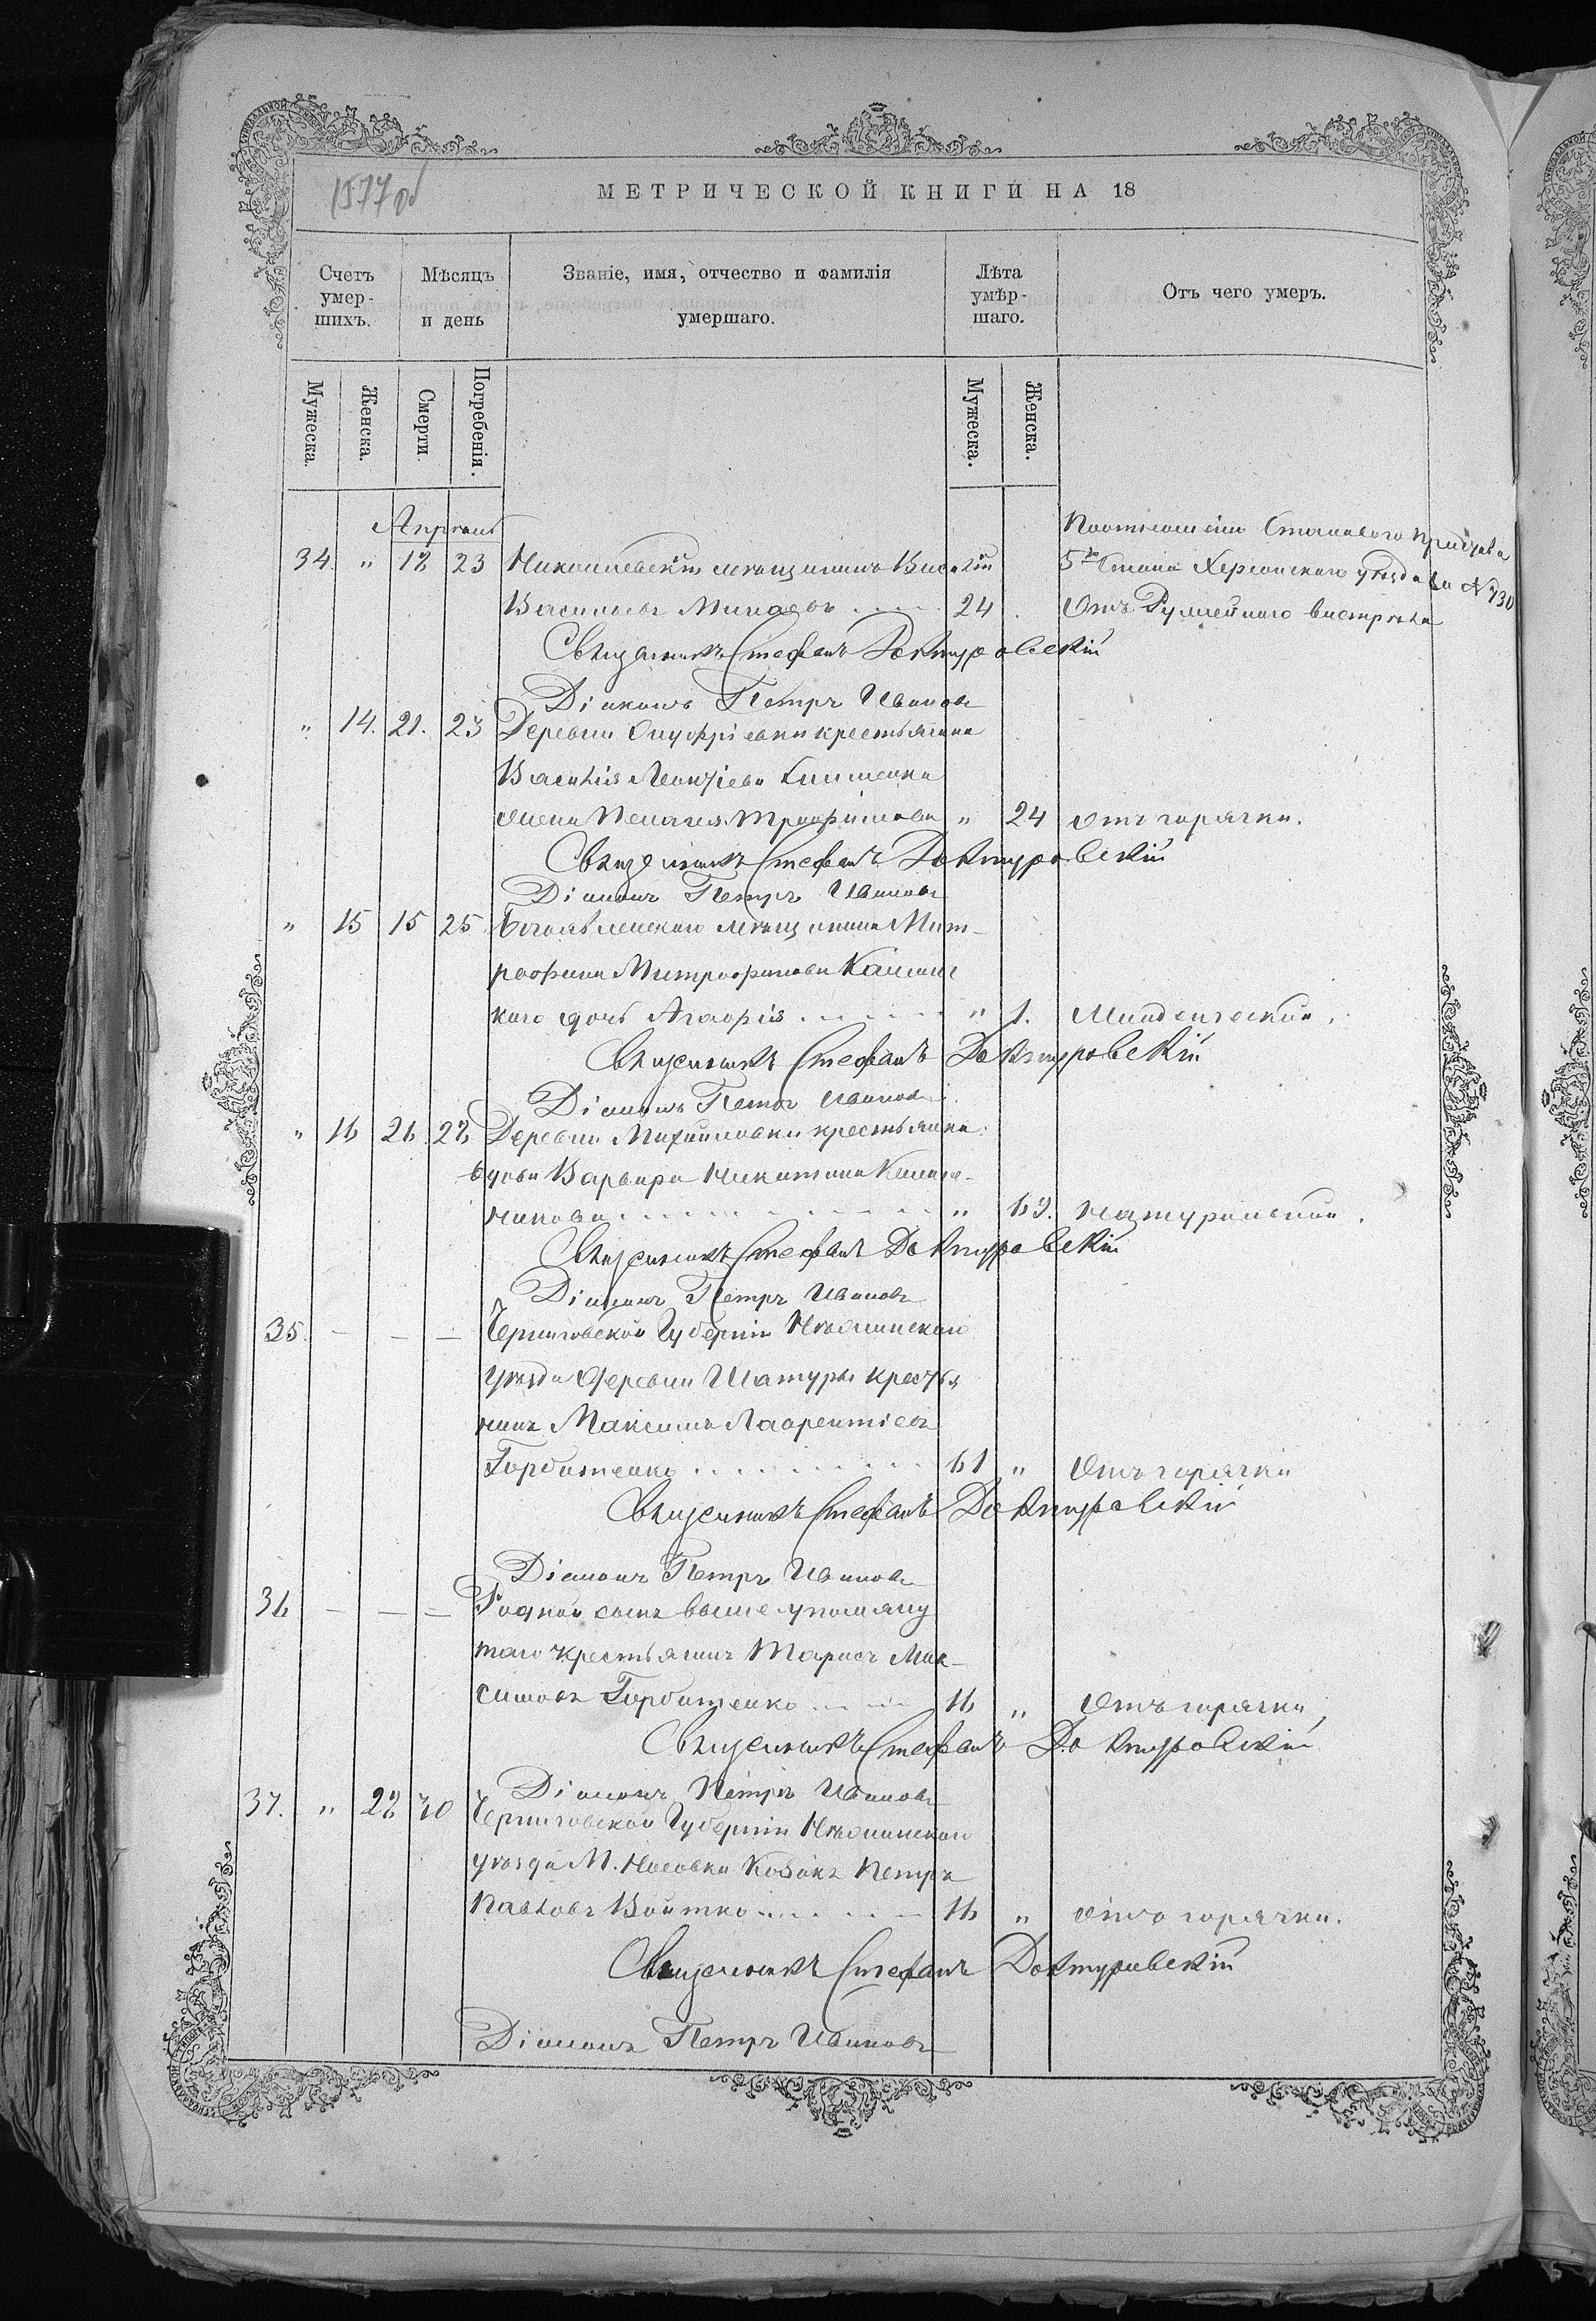 1577 об
МЕТРИЧЕСКОЙ КНИГИ НА 18
Счетъ умер-шихъ.
Мѣсяцъ и день
Званіе, имя, отчество и фамилія умершаго.
Лѣта умѣр-шаго.
Отъ чего умеръ.
Мужеска.
Женска.
Смерти.
Погребенія.
Мужеска.
Женска.
Апрель
По отношенію Становаго Пристава
34. " 18 23 Николаевскій мещанинъ Василій 5го Стана Херсонскаго уезда за № 730
Васильевъ Минаевъ 24 Отъ Ружейнаго выстрела
Священникъ Стефанъ Доктуровскій
Діаконъ Петръ Ивановъ
" 14. 21. 23 Деревни Онуфріевки крестьянина
Василія Леонтіева
жена Пелагея Трофимова " 24 Отъ горячки.
Священникъ Стефанъ Доктуровскій
Діаконъ Петръ Ивановъ
" 15 15 25 Богоявленскаго мещанина Мит-
рофана Митрофанова
каго дочь Агафія " 1. Младенческой.
Священникъ Стефанъ Доктуровскій
Діаконъ Петръ Ивановъ
" 16 26 28 Деревни Михайловки крестьянка
вдова Варвара Никитина
никова " 69. натуральной.
Священникъ Стефанъ Доктуровскій
Діаконъ Петръ Ивановъ
35. — — — Черниговской Губерніи Нежинскаго
уезда деревни Шатуры крестья
нинъ Максимъ Лаврентіевъ
Горбатенко 61 " Отъ горячки
Священникъ Стефанъ Доктуровскій
Діаконъ Петръ Ивановъ
36 — — — Родной сынъ вышеупомяну
таго крестьянинъ Тарасъ Мак-
симовъ Горбатенко 16 " Отъ горячки,
Священникъ Стефанъ Доктуровскій
Діаконъ Петръ Ивановъ
37. " 28 30 Черниговской Губерніи Нежинскаго
уезда М. Носовки Козакъ Петръ
Павловъ Войтко 16 " Отъ горячки.
Священникъ Стефанъ Доктуровскій
Діаконъ Петръ Ивановъ